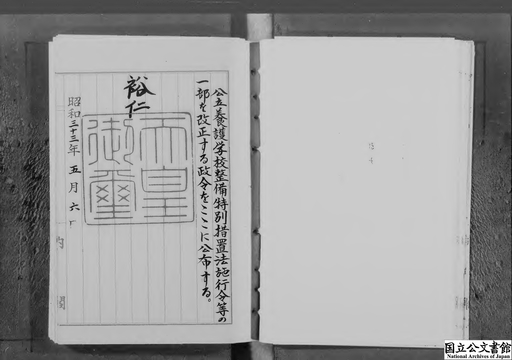 公立養護学校整備特別措置法施行令等の
一部を改正する政令をここに公布する。
裕仁
天皇
御璽
昭和三十三年五月六
内閣
国立公文書館
National Archives of Japan